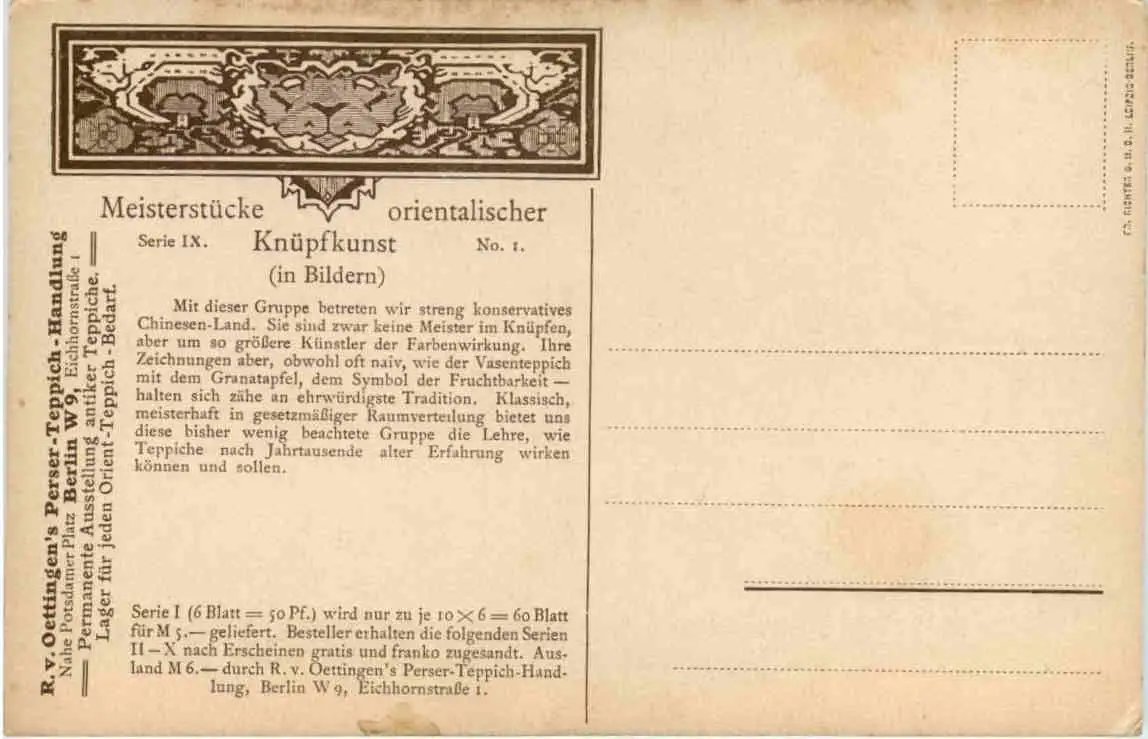 Meisterstücke orientalischer
Serie IX. Knüpfkunst No. 1.
(in Bildern)
Mit dieser Gruppe betreten wir streng konservatives
Chinesen-Land. Sie sind zwar keine Meister im Knüpfen,
aber um so größere Künstler der Farbenwirkung. Ihre
Zeichnungen aber, obwohl oft naiv, wie der Vasenteppich
mit dem Granatapfel, dem Symbol der Fruchtbarkeit —
halten sich zähe an ehrwürdigste Tradition. Klassisch,
meisterhaft in gesetzmäßiger Raumverteilung bietet uns
diese bisher wenig beachtete Gruppe die Lehre, wie
Teppiche nach Jahrtausende alter Erfahrung wirken
können und sollen.
Serie I (6 Blatt = 50 Pf.) wird nur zu je 10 × 6 = 60 Blatt
für M 5.— geliefert. Besteller erhalten die folgenden Serien
II — X nach Erscheinen gratis und franko zugesandt. Aus-
land M 6.— durch R. v. Oettingen's Perser-Teppich-Hand-
lung, Berlin W 9, Eichhornstraße 1.
R. v. Oettingen's Perser-Teppich-Handlung
Nahe Potsdamer Platz Berlin W 9, Eichhornstraße 1
Permanente Ausstellung antiker Teppiche.
Lager für jeden Orient-Teppich-Bedarf.
FR. RICHTER G. M. B. H. LEIPZIG-BERLIN.